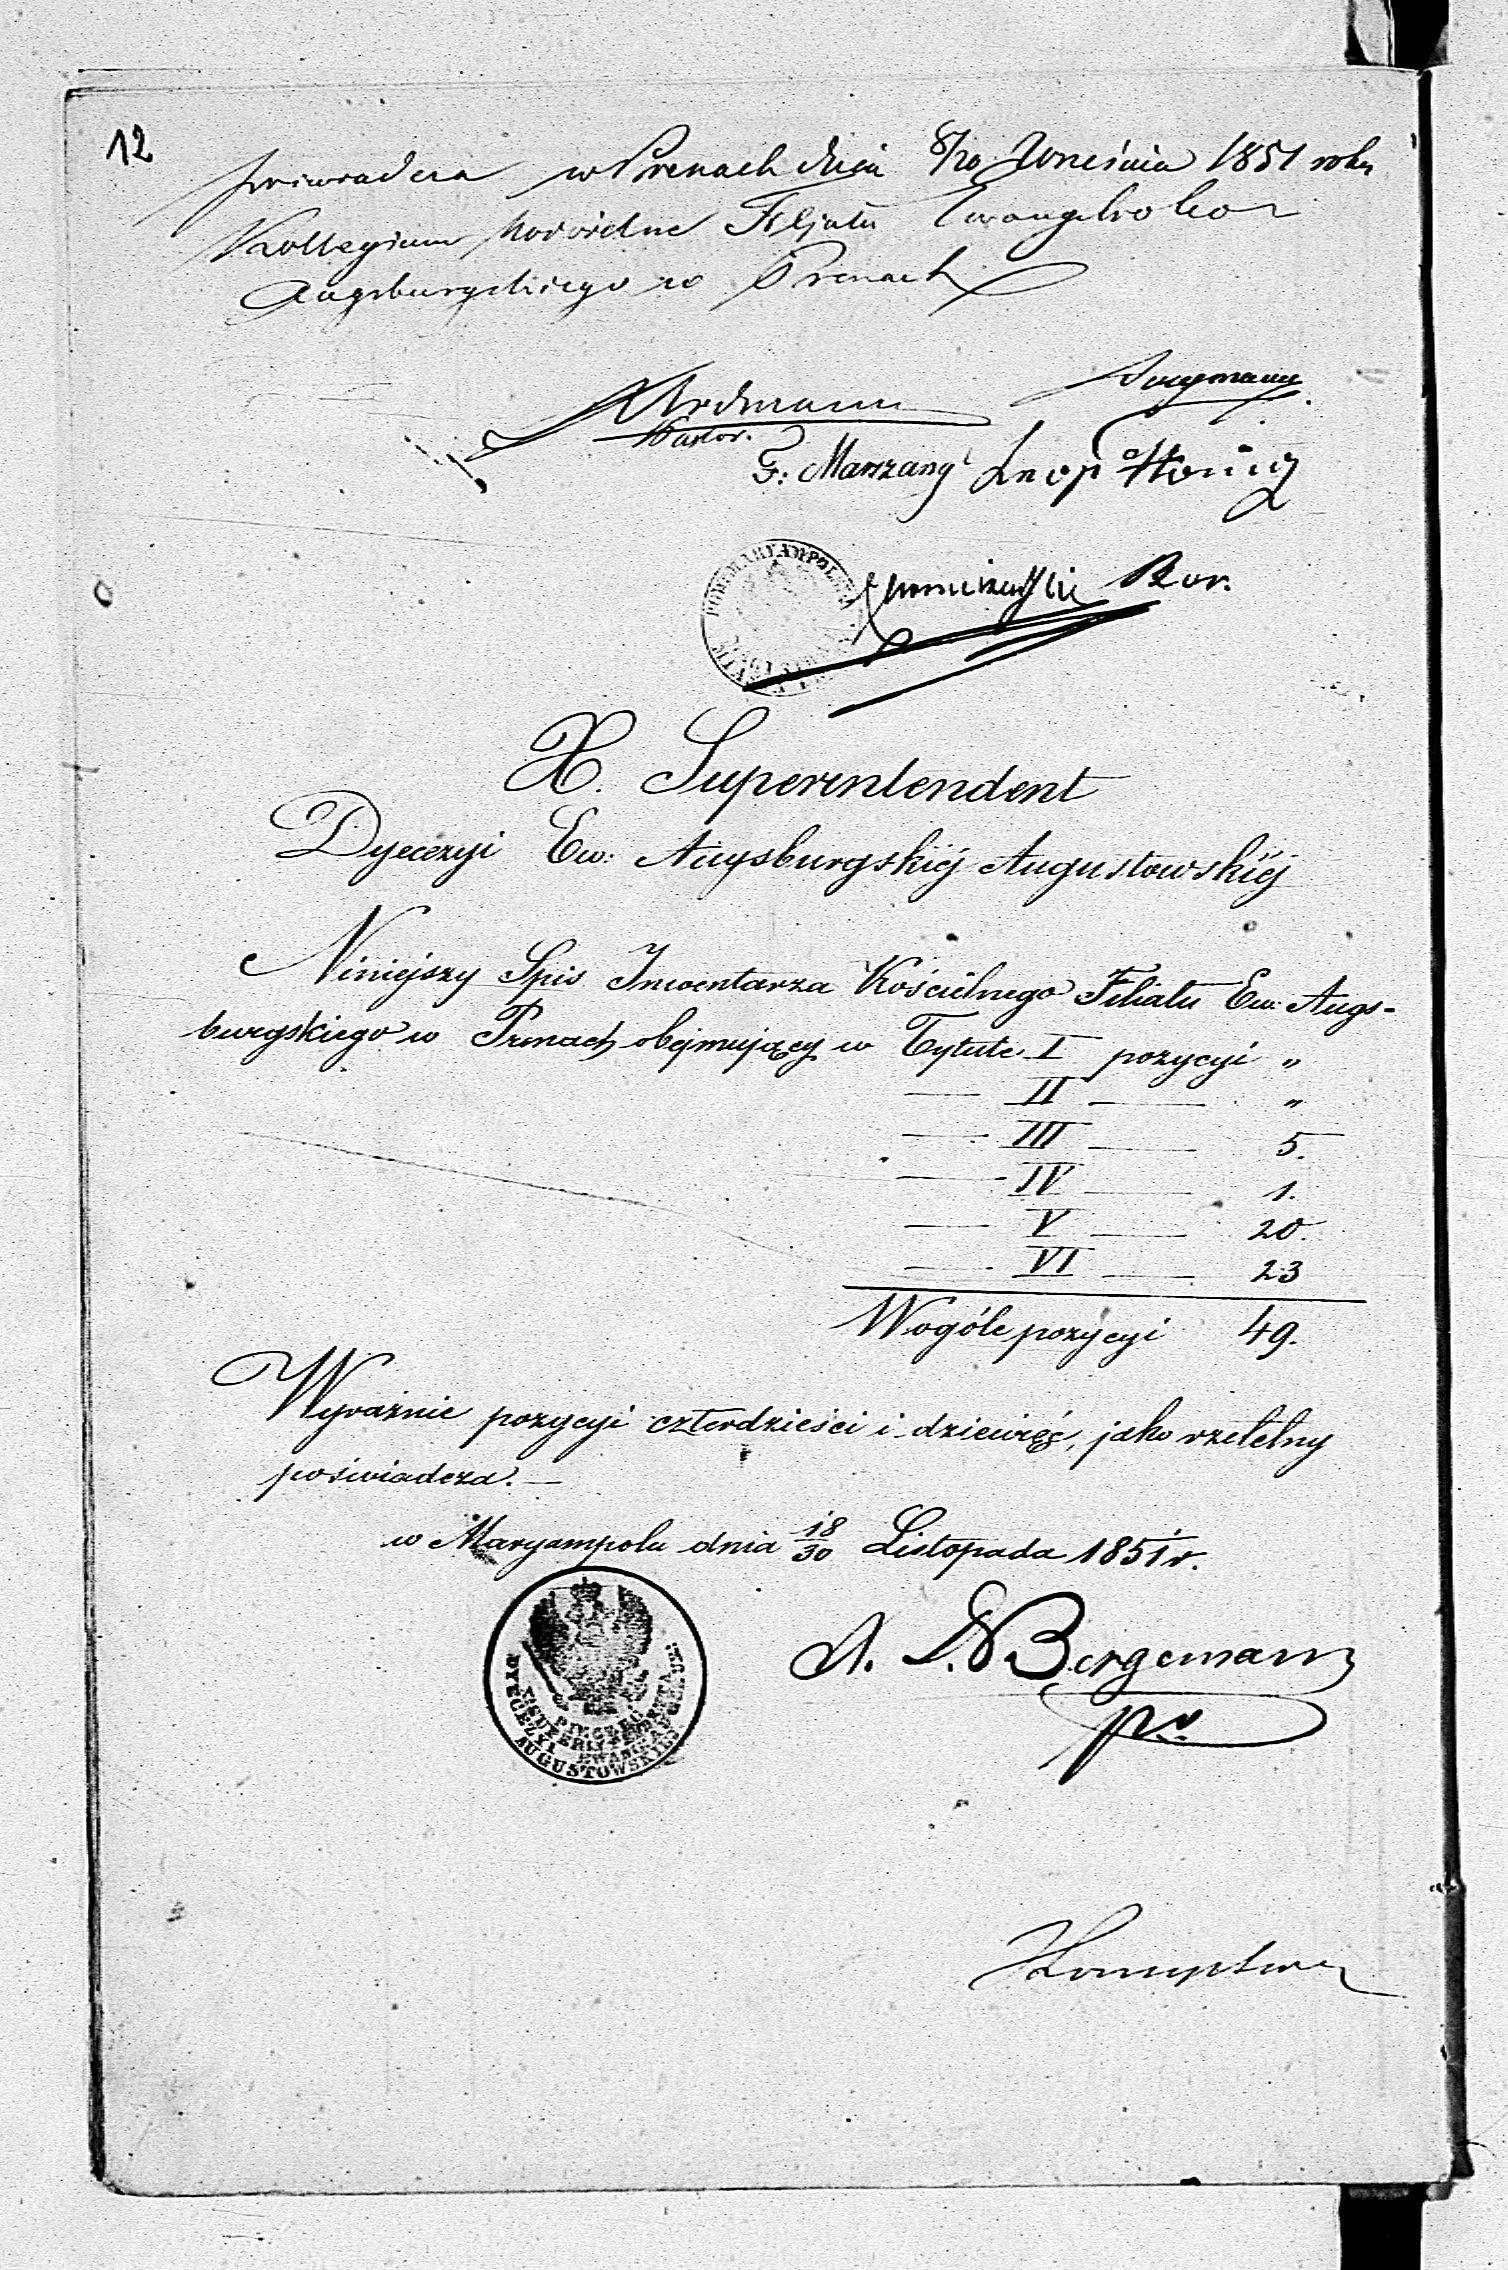 12
poświadcza w Prenach dnia 8/20 Września 1851 roku
Kollegium Kościelne Filjału Ewangelicko
Augsburgskiego w Prenach
Erdmann
Pastor.
F: Marszang Leop König
Bur.
X. Superintendent
Dyecezyi Ew: Augsburgskiéj Augustowskiéj
Niniejszy Spis Inwentarza Kościelnego Filiału Ew: Augs-
burgskiego w Prenach obejmujący w Tytule I pozycyi „
— II — „
— III — 5.
— IV — 1.
— V — 20.
— VI — 23
Wogóle pozycyi 49.
Wyraźnie pozycyi czterdzieści i dziewięć, jako rzetelny
poświadcza. —
w Maryampolu dnia 18/30 Listopada 1851 r.
PIECZĘĆ
SUPERINTENDENTA
DYECEZYI EWANG: AUGSB:
AUGUSTOWSKIEJ
A. L. Bergemann